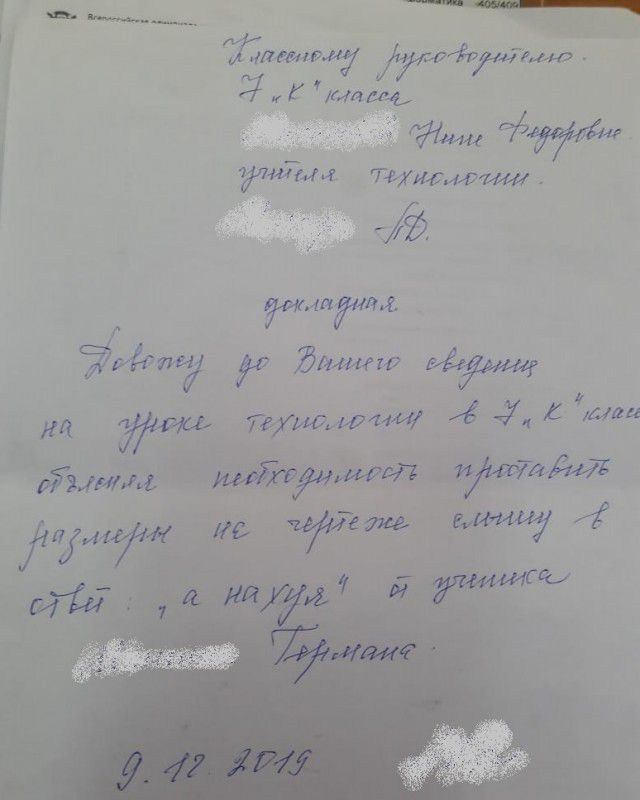 Всероссийская олимпиада
форматика 405/409
Классному руководителю.
7 „К" класса
Нине Федоровне
учителя технологии.
Л.Д.
докладная.
Довожу до Вашего сведения
на уроке технологии в 7 „К" класс
объясняя необходимость проставить
размеры на чертеже слышу в
ответ: „а нахуя" от ученика
Германа.
9.12.2019